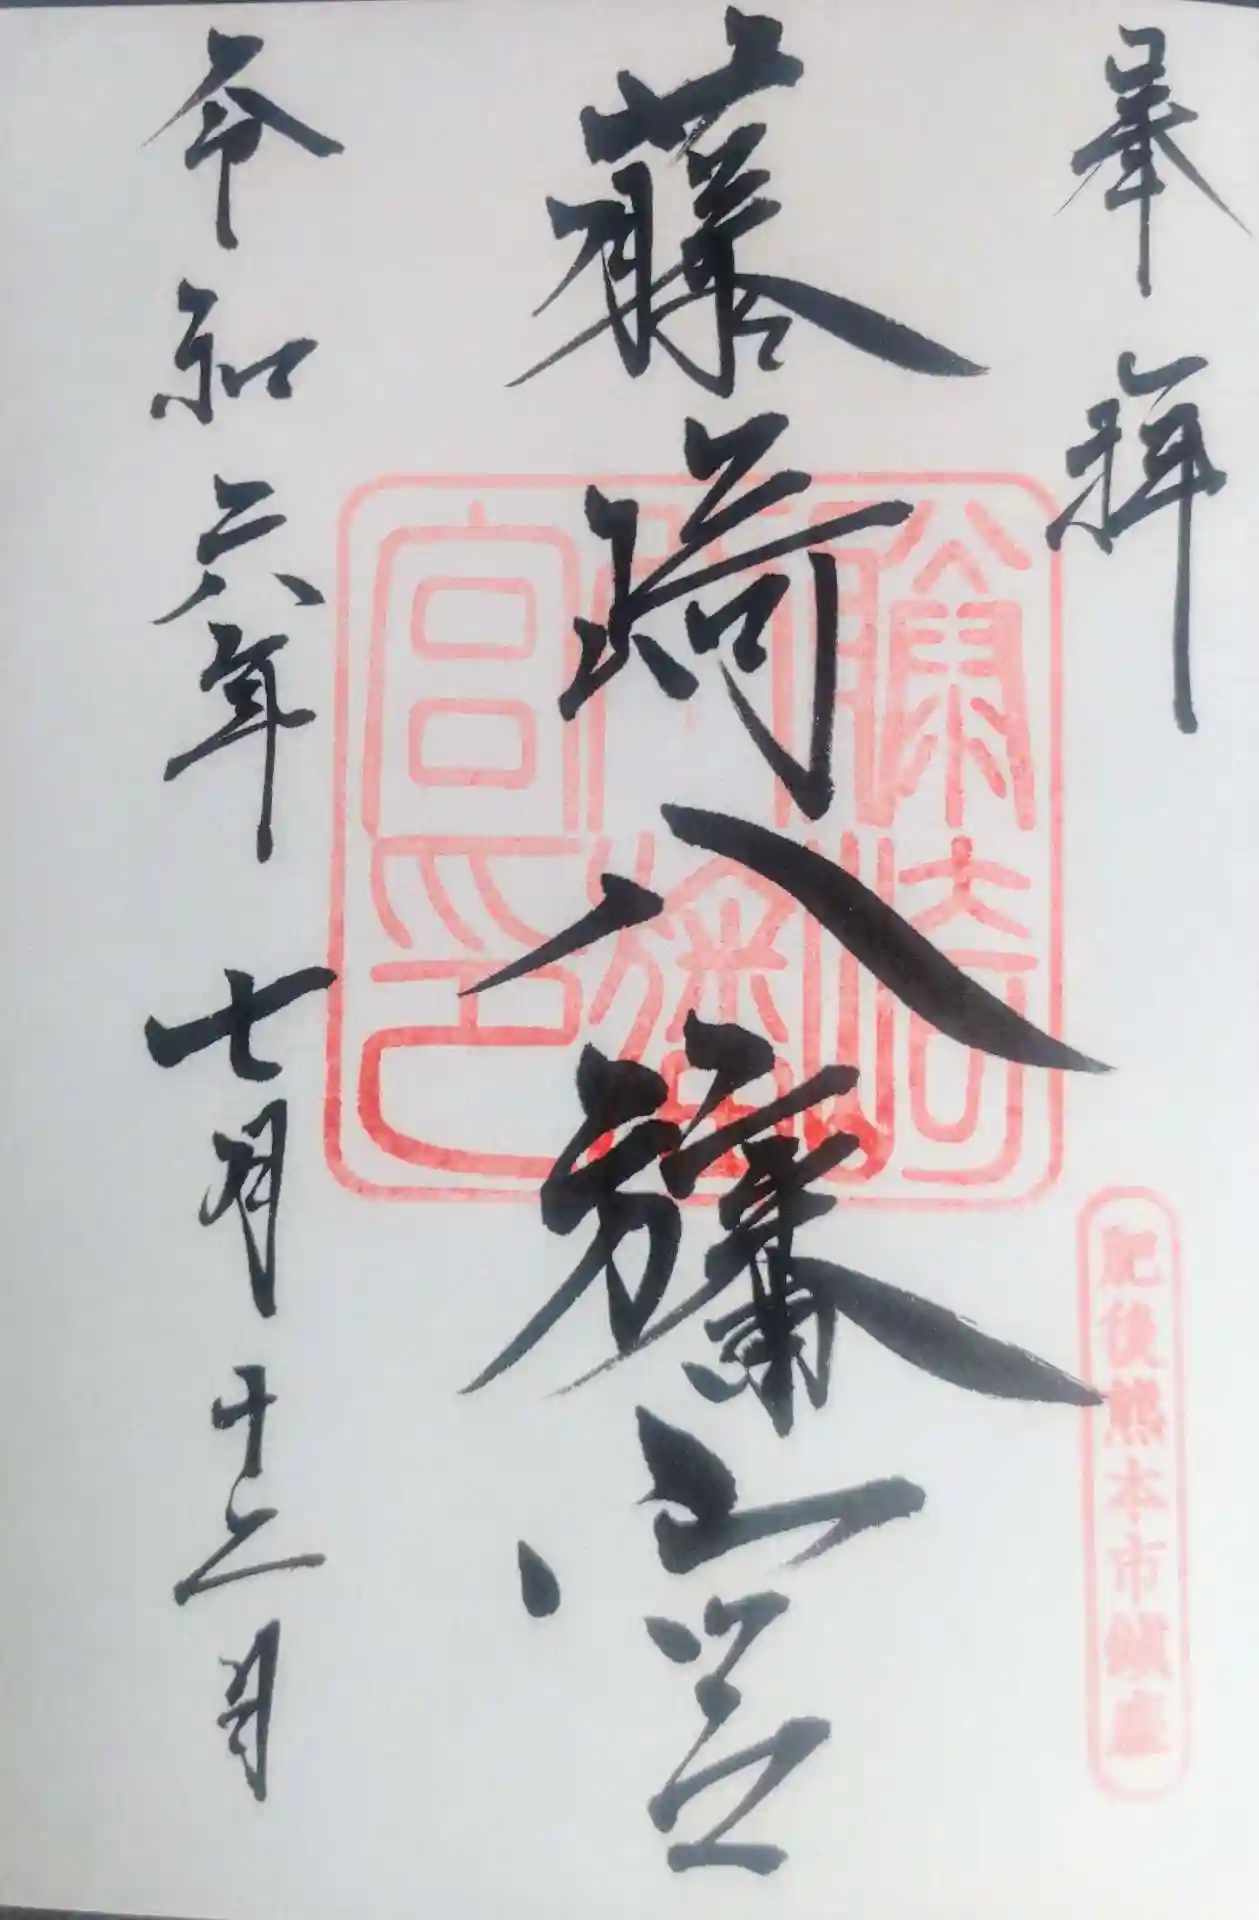 奉拝
肥後熊本市鎮座
藤崎八旛宮
藤崎八旛宮印
令和六年 七月十二日